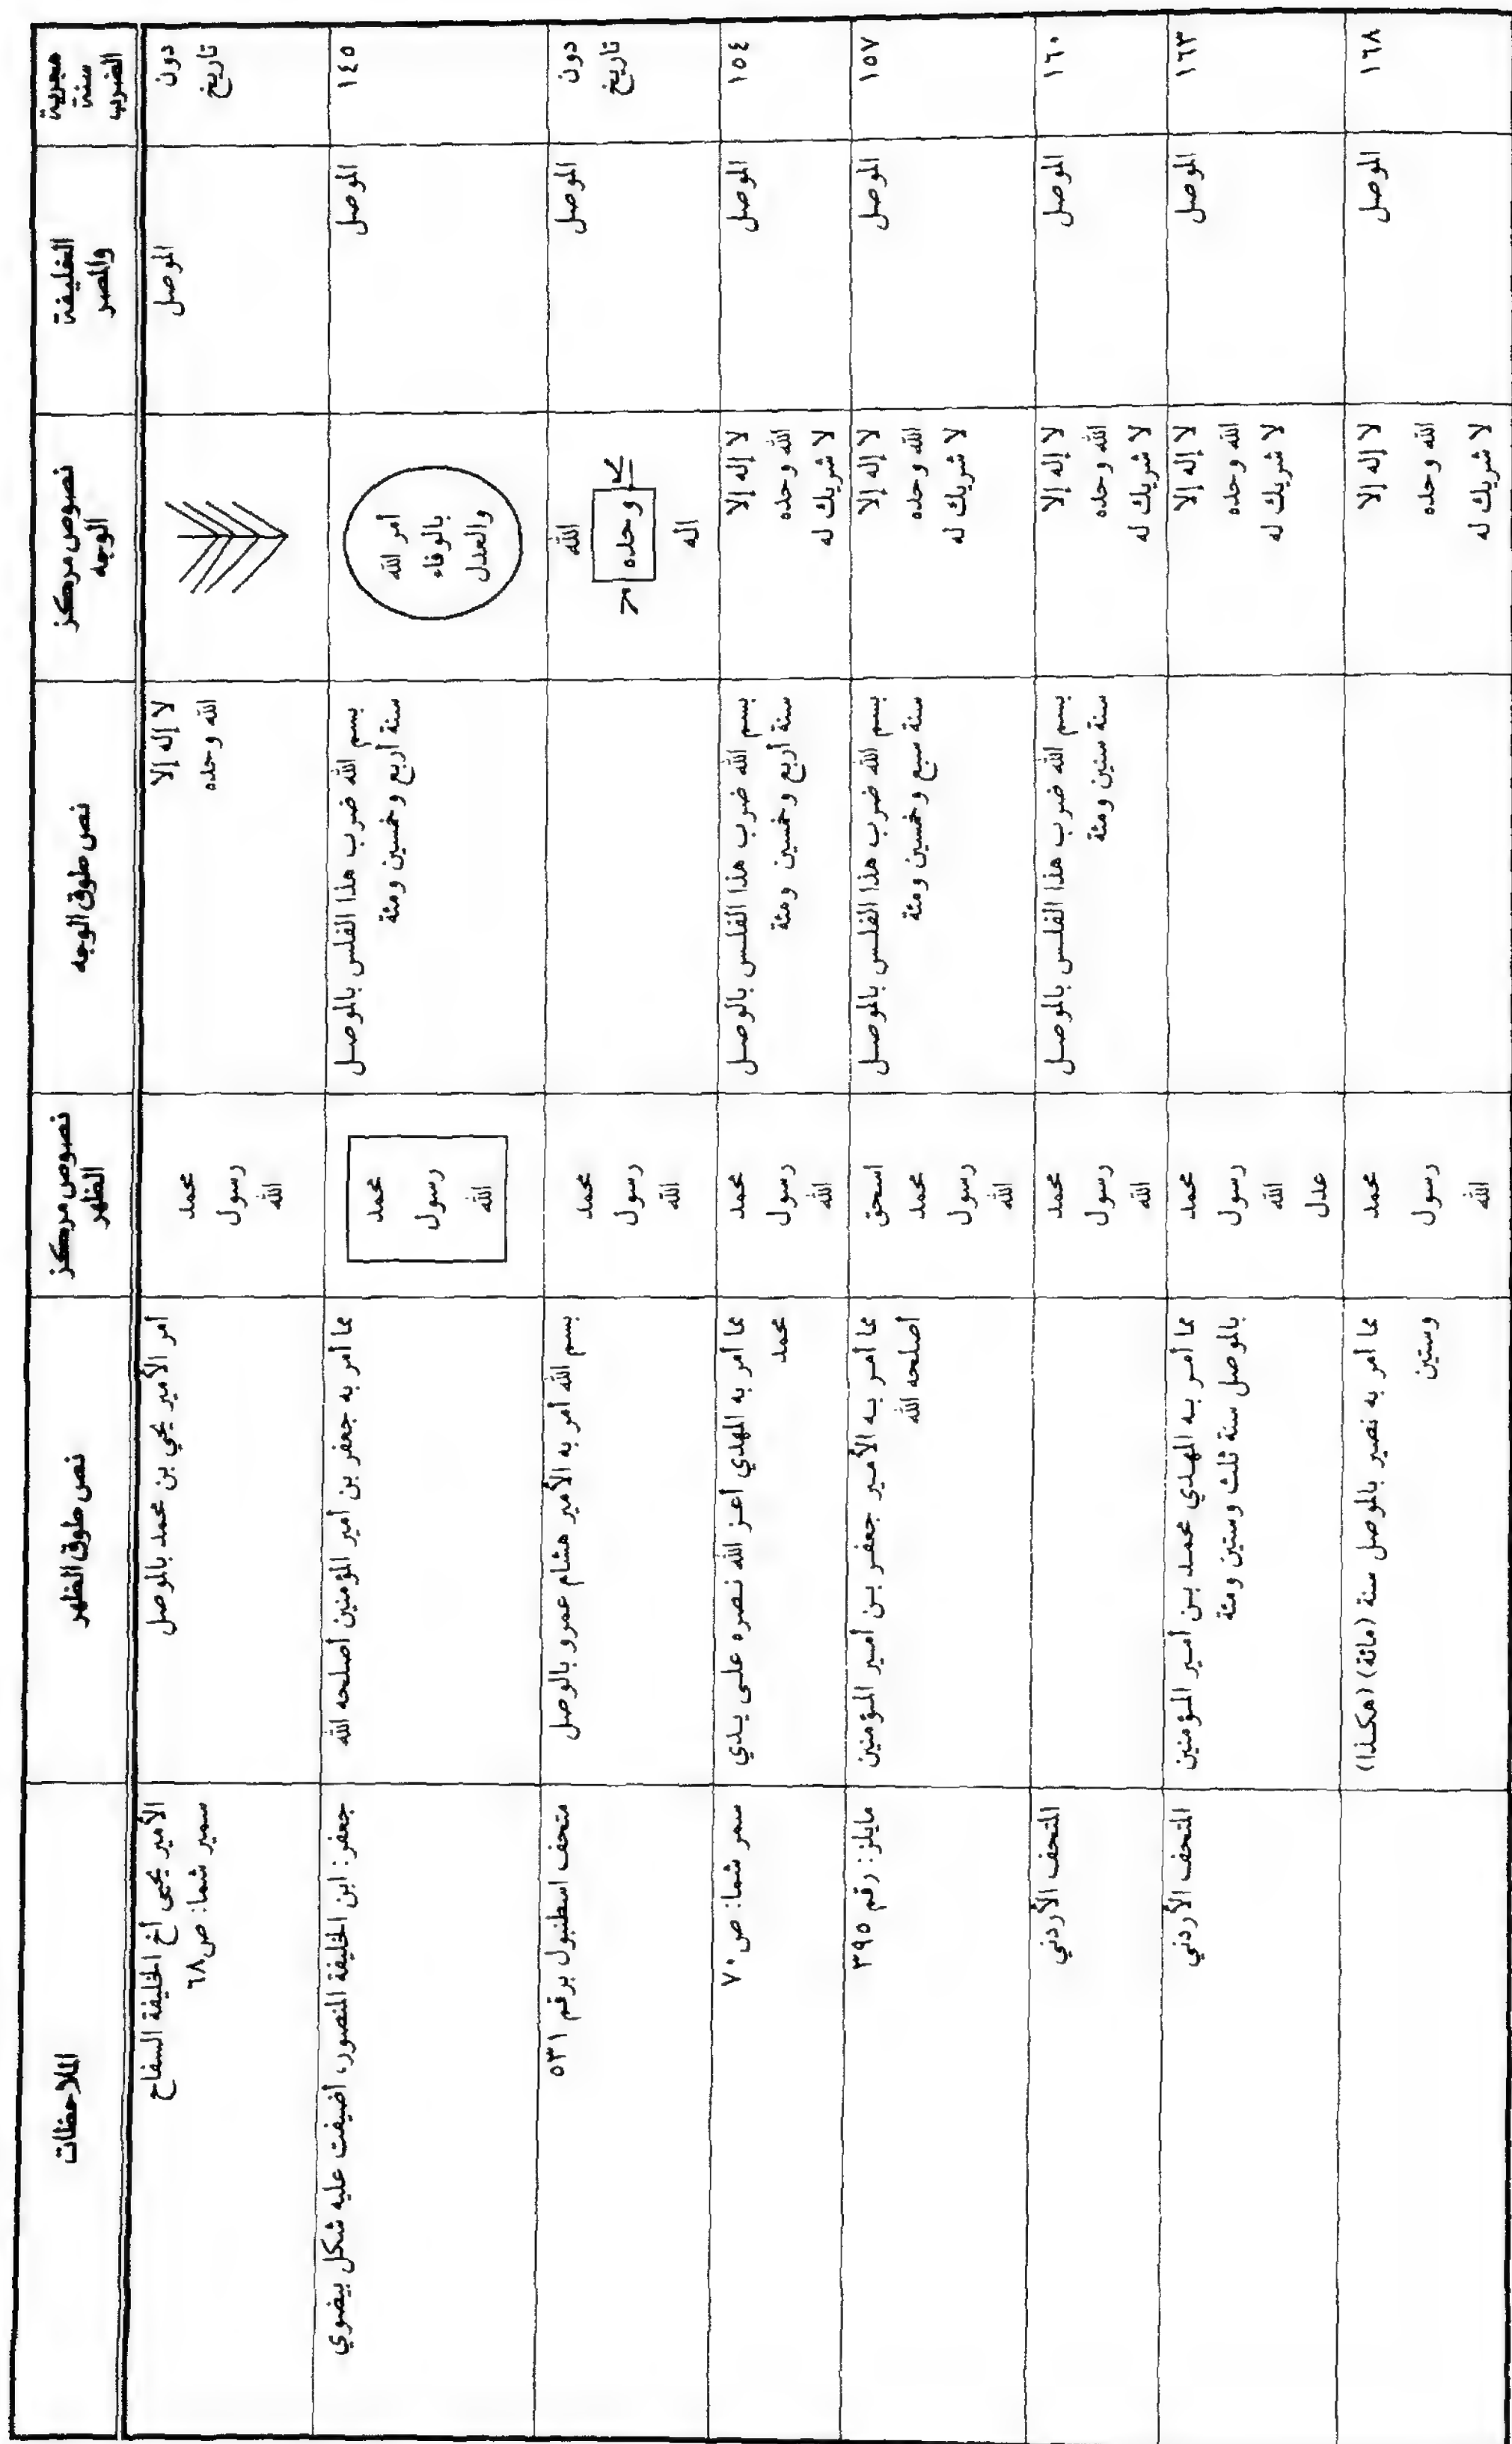 الضرب سنة هجرية
الخليفة والمصر
نصوص مركز الوجه
نص طوق الوجه
نصوص مركز الظهر
نص طوق الظهر
الملاحظات
دون
تاريخ
الموصل
لا إله إلا
الله وحده
محمد
رسول
الله
أمر الأمير يحي بن محمد بالموصل
الأمير يحيى أخ الخليفة السفاح
سمير شما: ص٦٨
١٤٥
الموصل
أمر الله
بالوفاء
والعدل
بسم الله ضرب هذا الفلس بالموصل
سنة أربع وخمسين ومئة
محمد
رسول
الله
مما أمر به جعفر بن أمير المؤمنين أصلحه الله
جعفر: ابن الخليفة المنصور، أضيفت عليه شكل بيضوي
دون
تاريخ
الموصل
الله
وحده
اله
محمد
رسول
الله
بسم الله أمر به الأمير هشام عمرو بالوصل
متحف اسطنبول برقم ٥٣١
١٥٤
الموصل
لا إله إلا
الله وحده
لا شريك له
بسم الله ضرب هذا الفلس بالوصل
سنة أربع وخمسين ومئة
محمد
رسول
الله
مما أمر به المهدي أعز الله نصره على يدي
محمد
سمر شما: ص٧٠
١٥٧
الموصل
لا إله إلا
الله وحده
لا شريك له
بسم الله ضرب هذا الفلس بالموصل
سنة سبع وخمسين ومئة
اسحق
محمد
رسول
الله
مما أمر به الأمير جعفر بن أمير المؤمنين
أصلحه الله
مايلز: رقم ٣٩٥
١٦٠
الموصل
لا إله إلا
الله وحده
لا شريك له
بسم الله ضرب هذا الفلس بالموصل
سنة ستين ومئة
محمد
رسول
الله
المتحف الأردني
١٦٣
الموصل
لا إله إلا
الله وحده
لا شريك له
محمد
رسول
الله
عدل
مما أمر به المهدي محمد بن أمير المؤمنين
بالموصل سنة ثلث وستين ومئة
المتحف الأردني
١٦٨
الموصل
لا إله إلا
الله وحده
لا شريك له
محمد
رسول
الله
مما أمر به نصير بالموصل سنة (مائة) (هكذا)
وستين